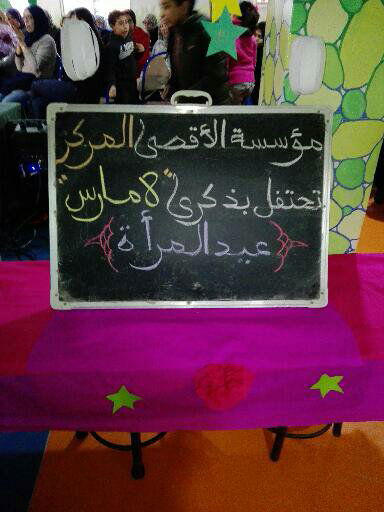 مؤسسة الأقصى المركز
تحتفل بذكرى "8 مارس"
عيد المرأة